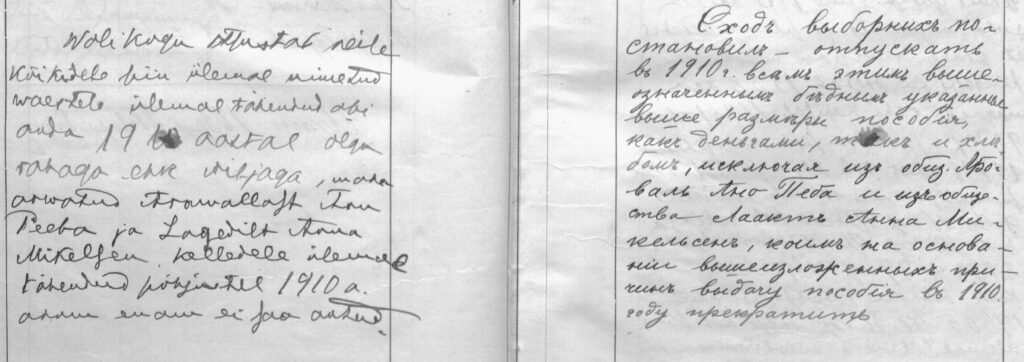 Wolikogu otsustas neile
kõikidele siin ülemal nimetud
waestele ülemal tähendud abi
anda 1910 aastal olgu
rahaga ehk wiljaga, maha
arwatud Arawallast Anu
Peeba ja Lagedilt Anna
Mikelsen kelledele ülemal
tähendud põhjustel 1910 a.
annu enam ei saa antud.
Сходъ выборныхъ по-
становилъ – отпускать
въ 1910 г. всѣмъ этимъ выше-
означеннымъ бѣднымъ указанные
выше размѣры пособія,
какъ деньгами, такъ и хлѣ-
бомъ, исключая изъ общ. Аро-
валь Ано Пеба и изъ обще-
ства Лаактъ Анна Ми-
кельсенъ, коимъ на основа-
ніи вышеизложенныхъ при-
чинъ выдачу пособія въ 1910.
году прекратить